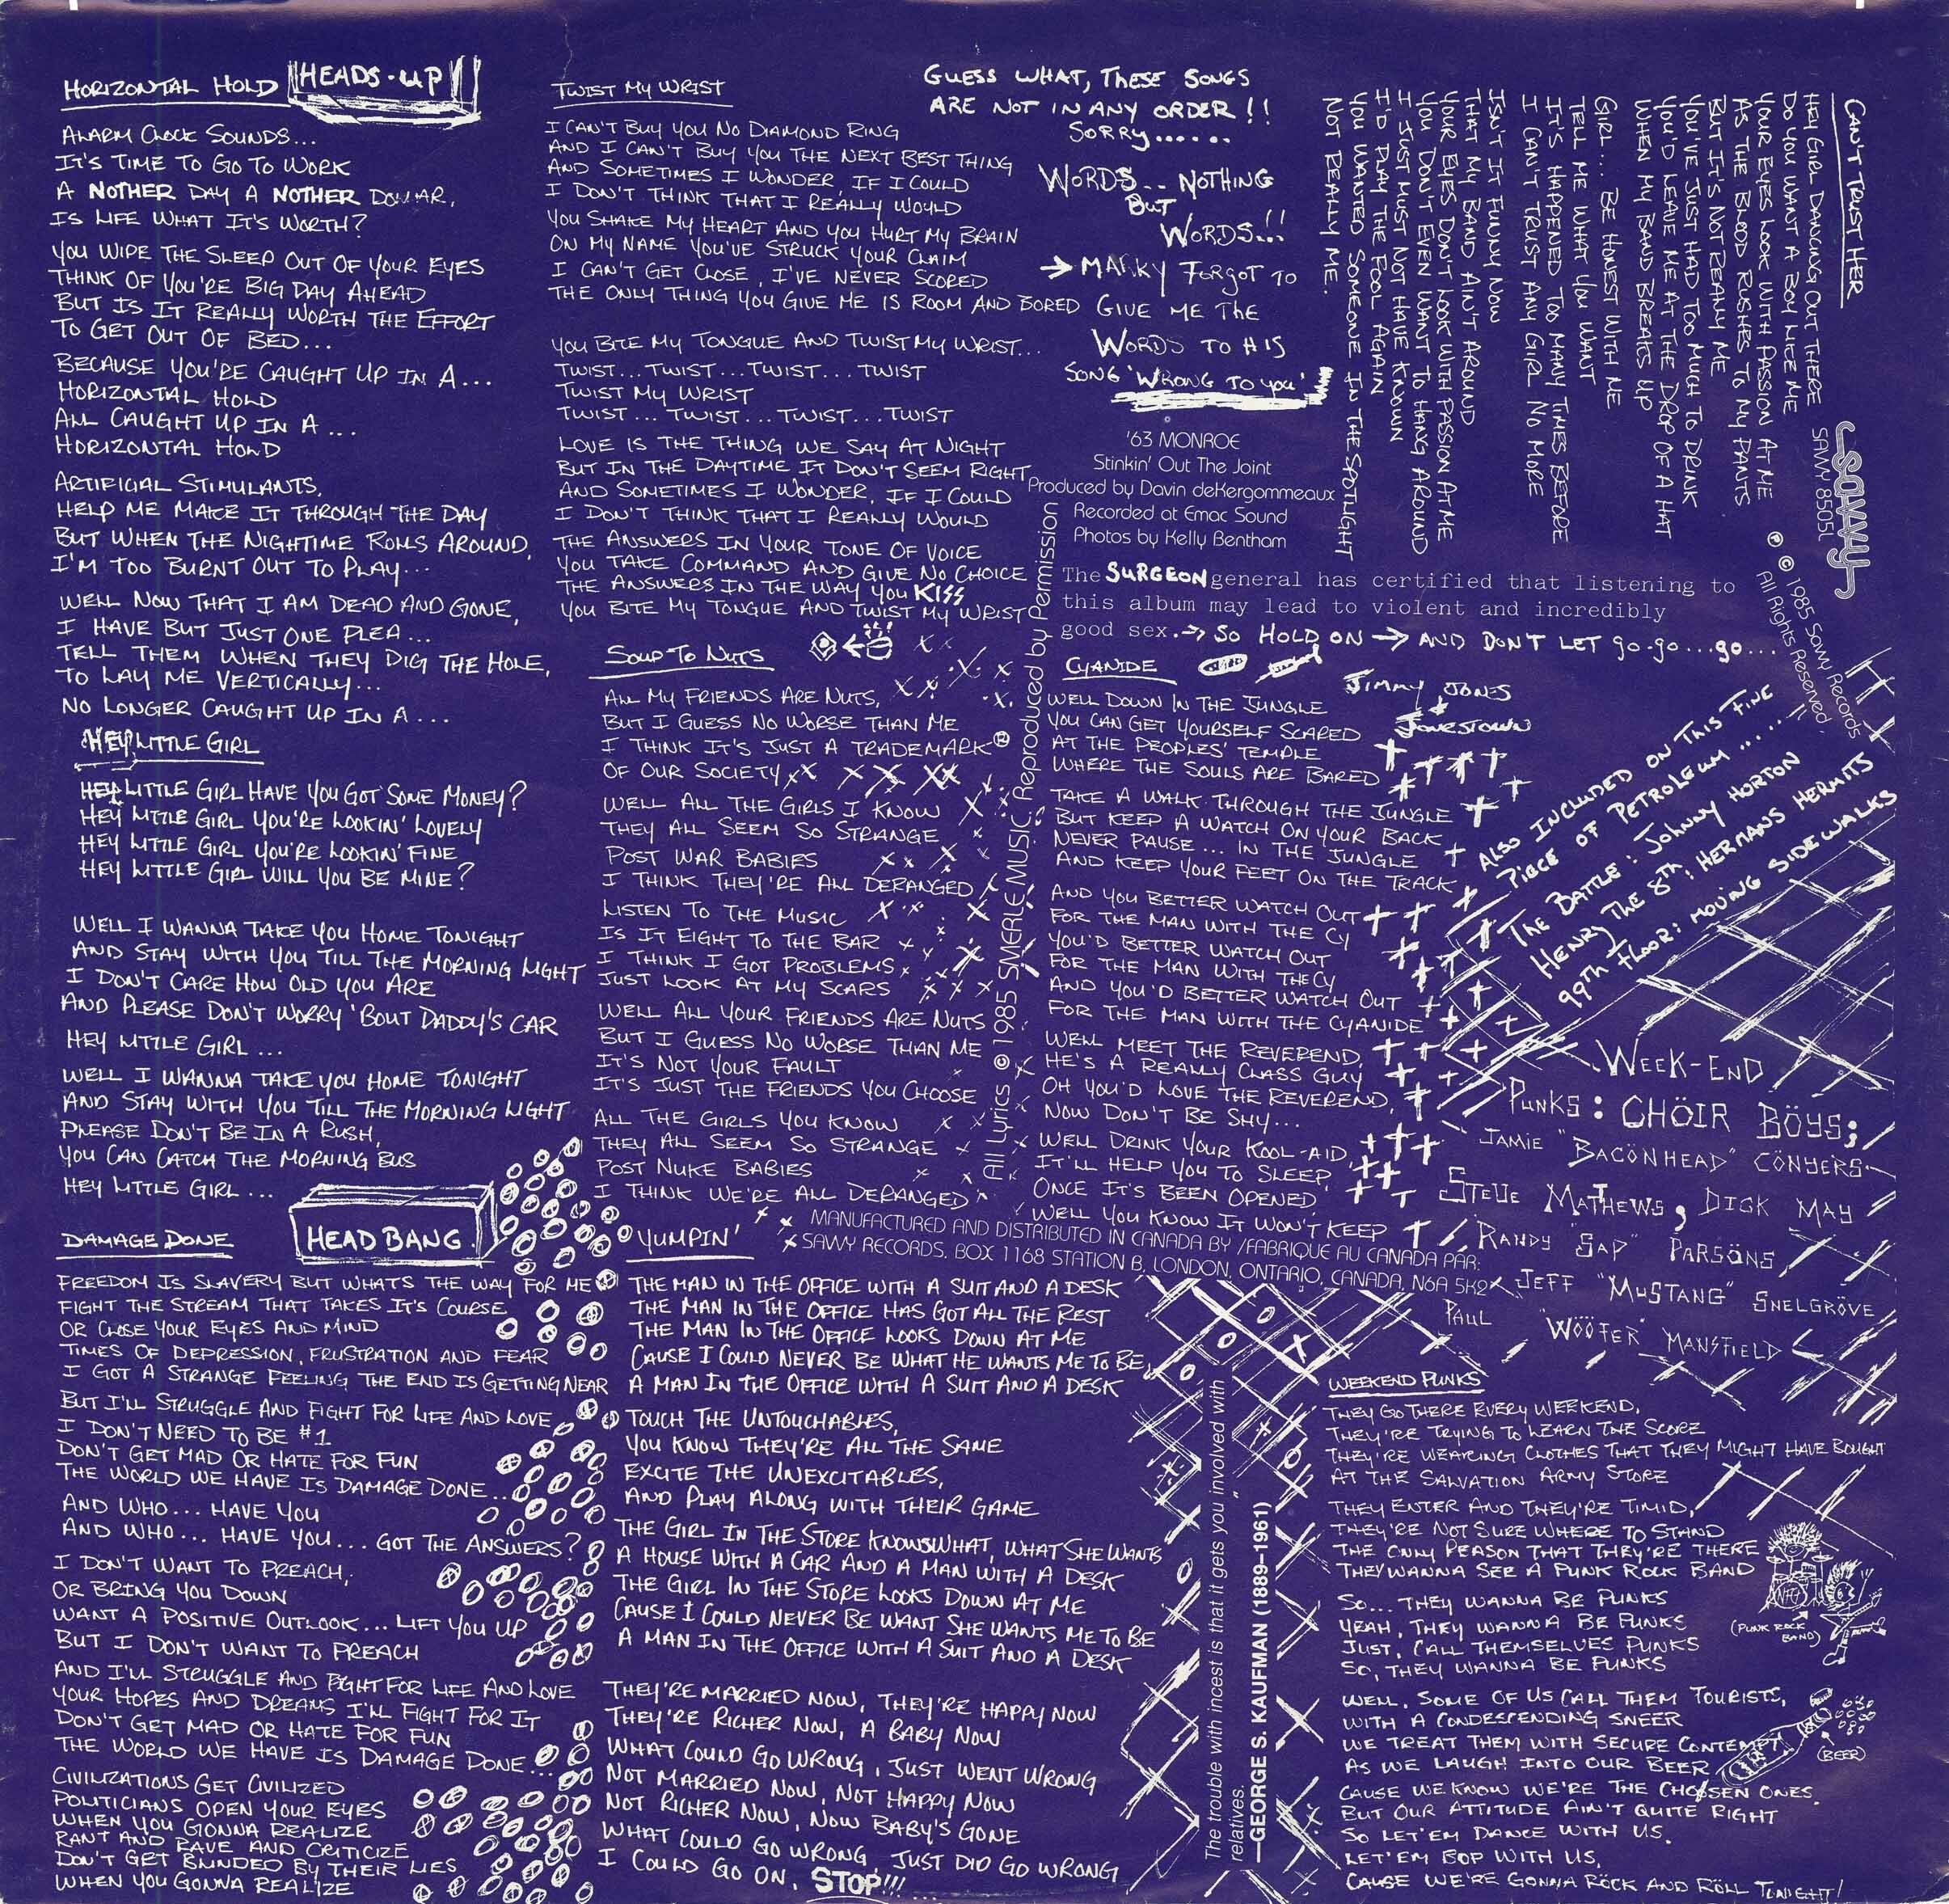 HORIZONTAL HOLD
HEADS-UP
ALARM CLOCK SOUNDS...
IT'S TIME TO GO TO WORK
A NOTHER DAY A NOTHER DOLLAR,
IS LIFE WHAT IT'S WORTH?
YOU WIPE THE SLEEP OUT OF YOUR EYES
THINK OF YOU'RE BIG DAY AHEAD
BUT IS IT REALLY WORTH THE EFFORT
TO GET OUT OF BED...
BECAUSE YOU'RE CAUGHT UP IN A...
HORIZONTAL HOLD
ALL CAUGHT UP IN A...
HORIZONTAL HOLD
ARTIFICIAL STIMULANTS,
HELP ME MAKE IT THROUGH THE DAY
BUT WHEN THE NIGHTIME ROLLS AROUND,
I'M TOO BURNT OUT TO PLAY...
WELL NOW THAT I AM DEAD AND GONE,
I HAVE BUT JUST ONE PLEA...
TELL THEM WHEN THEY DIG THE HOLE,
TO LAY ME VERTICALLY...
NO LONGER CAUGHT UP IN A...
HEY LITTLE GIRL
HEY LITTLE GIRL HAVE YOU GOT SOME MONEY?
HEY LITTLE GIRL YOU'RE LOOKIN' LOVELY
HEY LITTLE GIRL YOU'RE LOOKIN' FINE
HEY LITTLE GIRL WILL YOU BE MINE?
WELL I WANNA TAKE YOU HOME TONIGHT
AND STAY WITH YOU TILL THE MORNING LIGHT
I DON'T CARE HOW OLD YOU ARE
AND PLEASE DON'T WORRY 'BOUT DADDY'S CAR
HEY LITTLE GIRL...
WELL I WANNA TAKE YOU HOME TONIGHT
AND STAY WITH YOU TILL THE MORNING LIGHT
PLEASE DON'T BE IN A RUSH,
YOU CAN CATCH THE MORNING BUS
HEY LITTLE GIRL...
HEAD BANG
DAMAGE DONE
FREEDOM IS SLAVERY BUT WHATS THE WAY FOR ME
FIGHT THE STREAM THAT TAKES IT'S COURSE
OR CLOSE YOUR EYES AND MIND
TIMES OF DEPRESSION, FRUSTRATION AND FEAR
I GOT A STRANGE FEELING THE END IS GETTING NEAR
BUT I'LL STRUGGLE AND FIGHT FOR LIFE AND LOVE
I DON'T NEED TO BE #1
DON'T GET MAD OR HATE FOR FUN
THE WORLD WE HAVE IS DAMAGE DONE...
AND WHO... HAVE YOU
AND WHO... HAVE YOU... GOT THE ANSWERS?
I DON'T WANT TO PREACH,
OR BRING YOU DOWN
WANT A POSITIVE OUTLOOK... LIFT YOU UP
BUT I DON'T WANT TO PREACH
AND I'LL STRUGGLE AND FIGHT FOR LIFE AND LOVE
YOUR HOPES AND DREAMS I'LL FIGHT FOR IT
DON'T GET MAD OR HATE FOR FUN
THE WORLD WE HAVE IS DAMAGE DONE...
CIVILIZATIONS GET CIVILIZED
POLITICIANS OPEN YOUR EYES
WHEN YOU GIONNA REALIZE
RANT AND RAVE AND CRITICIZE
DON'T GET BLINDED BY THEIR LIES
WHEN YOU GONNA REALIZE
TWIST MY WRIST
I CAN'T BUY YOU NO DIAMOND RING
AND I CAN'T BUY YOU THE NEXT BEST THING
AND SOMETIMES I WONDER, IF I COULD
I DON'T THINK THAT I REALLY WOULD
YOU SHAKE MY HEART AND YOU HURT MY BRAIN
ON MY NAME YOU'VE STRUCK YOUR CLAIM
I CAN'T GET CLOSE, I'VE NEVER SCORED
THE ONLY THING YOU GIVE ME IS ROOM AND BORED
YOU BITE MY TONGUE AND TWIST MY WRIST...
TWIST...TWIST...TWIST...TWIST
TWIST MY WRIST
TWIST...TWIST...TWIST...TWIST
LOVE IS THE THING WE SAY AT NIGHT
BUT IN THE DAYTIME IT DON'T SEEM RIGHT
AND SOMETIMES I WONDER, IF I COULD
I DON'T THINK THAT I REALLY WOULD
THE ANSWERS IN YOUR TONE OF VOICE
YOU TAKE COMMAND AND GIVE NO CHOICE
THE ANSWERS IN THE WAY YOU KISS
YOU BITE MY TONGUE AND TWIST MY WRIST
SOUP TO NUTS
ALL MY FRIENDS ARE NUTS,
BUT I GUESS NO WORSE THAN ME
I THINK IT'S JUST A TRADEMARK ®
OF OUR SOCIETY
WELL ALL THE GIRLS I KNOW
THEY ALL SEEM SO STRANGE
POST WAR BABIES
I THINK THEY'RE ALL DERANGED
LISTEN TO THE MUSIC
IS IT EIGHT TO THE BAR
I THINK I GOT PROBLEMS
JUST LOOK AT MY SCARS
WELL ALL YOUR FRIENDS ARE NUTS
BUT I GUESS NO WORSE THAN ME
IT'S NOT YOUR FAULT
IT'S JUST THE FRIENDS YOU CHOOSE
ALL THE GIRLS YOU KNOW
THEY ALL SEEM SO STRANGE
POST NUKE BABIES
I THINK WE'RE ALL DERANGED
YUMPIN'
THE MAN IN THE OFFICE WITH A SUIT AND A DESK
THE MAN IN THE OFFICE HAS GOT ALL THE REST
THE MAN IN THE OFFICE LOOKS DOWN AT ME
CAUSE I COULD NEVER BE WHAT HE WANTS ME TO BE,
A MAN IN THE OFFICE WITH A SUIT AND A DESK
TOUCH THE UNTOUCHABLES,
YOU KNOW THEY'RE ALL THE SAME
EXCITE THE UNEXCITABLES,
AND PLAY ALONG WITH THEIR GAME
THE GIRL IN THE STORE KNOWS WHAT, WHAT SHE WANTS
A HOUSE WITH A CAR AND A MAN WITH A DESK
THE GIRL IN THE STORE LOOKS DOWN AT ME
CAUSE I COULD NEVER BE WANT SHE WANTS ME TO BE
A MAN IN THE OFFICE WITH A SUIT AND A DESK
THEY'RE MARRIED NOW, THEY'RE HAPPY NOW
THEY'RE RICHER NOW, A BABY NOW
WHAT COULD GO WRONG, JUST WENT WRONG
NOT MARRIED NOW, NOT HAPPY NOW
NOT RICHER NOW, NOW BABY'S GONE
WHAT COULD GO WRONG, JUST DID GO WRONG
I COULD GO ON, STOP!!!...
GUESS WHAT, THESE SONGS
ARE NOT IN ANY ORDER!!
SORRY......
WORDS.. NOTHING
BUT
WORDS...!!
→ MARKY FORGOT TO
GIVE ME THE
WORDS TO HIS
SONG 'WRONG TO YOU'
'63 MONROE
Stinkin' Out The Joint
Produced by Davin deKergommeaux
Recorded at Emac Sound
Photos by Kelly Bentham
The SURGEON general has certified that listening to
this album may lead to violent and incredibly
good sex.→ SO HOLD ON → AND DON'T LET go-go...go...
All Lyrics © 1985 SNERLE MUSIC, Reproduced by Permission
CYANIDE
JIMMY JONES
JONESTOWN
WELL DOWN IN THE JUNGLE
YOU CAN GET YOURSELF SCARED
AT THE PEOPLES' TEMPLE
WHERE THE SOULS ARE BARED
TAKE A WALK THROUGH THE JUNGLE
BUT KEEP A WATCH ON YOUR BACK
NEVER PAUSE... IN THE JUNGLE
AND KEEP YOUR FEET ON THE TRACK
AND YOU BETTER WATCH OUT
FOR THE MAN WITH THE CY
YOU'D BETTER WATCH OUT
FOR THE MAN WITH THE CY
AND YOU'D BETTER WATCH OUT
FOR THE MAN WITH THE CYANIDE
WELL MEET THE REVEREND,
HE'S A REALLY CLASS GUY
OH YOU'D LOVE THE REVEREND,
NOW DON'T BE SHY...
WELL DRINK YOUR KOOL-AID
IT'LL HELP YOU TO SLEEP
ONCE IT'S BEEN OPENED
WELL YOU KNOW IT WON'T KEEP
MANUFACTURED AND DISTRIBUTED IN CANADA BY /FABRIQUE AU CANADA PAR:
SAVVY RECORDS, BOX 1168 STATION B, LONDON, ONTARIO, CANADA, N6A 5K2
CAN'T TRUST HER
HEY GIRL DANCING OUT THERE
DO YOU WANT A BOY LIKE ME
YOUR EYES LOOK WITH PASSION AT ME
AS THE BLOOD RUSHES TO MY PANTS
BUT IT'S NOT REALLY ME
YOU'VE JUST HAD TOO MUCH TO DRINK
YOU'D LEAVE ME AT THE DROP OF A HAT
WHEN MY BAND BREAKS UP
GIRL... BE HONEST WITH ME
TELL ME WHAT YOU WANT
IT'S HAPPENED TOO MANY TIMES BEFORE
I CAN'T TRUST ANY GIRL NO MORE
ISN'T IT FUNNY NOW
THAT MY BAND AIN'T AROUND
YOUR EYES DON'T LOOK WITH PASSION AT ME
YOU DON'T EVEN WANT TO HANG AROUND
I JUST MUST NOT HAVE KNOWN
I'D PLAY THE FOOL AGAIN
YOU WANTED SOMEONE IN THE SPOTLIGHT
NOT REALLY ME.
SAVVY
SAVVY 8505L
℗ © 1985 Savvy Records
All Rights Reserved
ALSO INCLUDED ON THIS FINE
PIECE OF PETROLEUM.....
THE BATTLE: JOHNNY HORTON
HENRY THE 8TH: HERMANS HERMITS
99TH FLOOR: MOVING SIDEWALKS
WEEK-END
PUNKS: CHÖIR BÖYS;
JAMIE "BACÖNHEAD" CÖNYERS
STEVE MATHEWS, DICK MAY
RANDY "SAP" PARSÖNS
JEFF "MUSTANG" SNELGRÖVE
PAUL "WÖÖFER" MANSFIELD
The trouble with incest is that it gets you involved with
relatives.
—GEORGE S. KAUFMAN (1889–1961)
WEEKEND PUNKS
THEY GO THERE EVERY WEEKEND,
THEY'RE TRYING TO LEARN THE SCORE
THEY'RE WEARING CLOTHES THAT THEY MIGHT HAVE BOUGHT
AT THE SALVATION ARMY STORE
THEY ENTER AND THEY'RE TIMID,
THEY'RE NOT SURE WHERE TO STAND
THE ONLY REASON THAT THEY'RE THERE
THEY WANNA SEE A PUNK ROCK BAND
SO... THEY WANNA BE PUNKS
YEAH, THEY WANNA BE PUNKS
JUST, CALL THEMSELVES PUNKS
SO, THEY WANNA BE PUNKS
(PUNK ROCK
BAND)
WELL, SOME OF US CALL THEM TOURISTS,
WITH A CONDESCENDING SNEER
WE TREAT THEM WITH SECURE CONTEMPT
AS WE LAUGH INTO OUR BEER
(BEER)
CAUSE WE KNOW WE'RE THE CHOSEN ONES.
BUT OUR ATTITUDE AIN'T QUITE RIGHT
SO LET'EM DANCE WITH US,
LET'EM BOP WITH US,
CAUSE WE'RE GONNA RÖCK AND RÖLL TONIGHT!